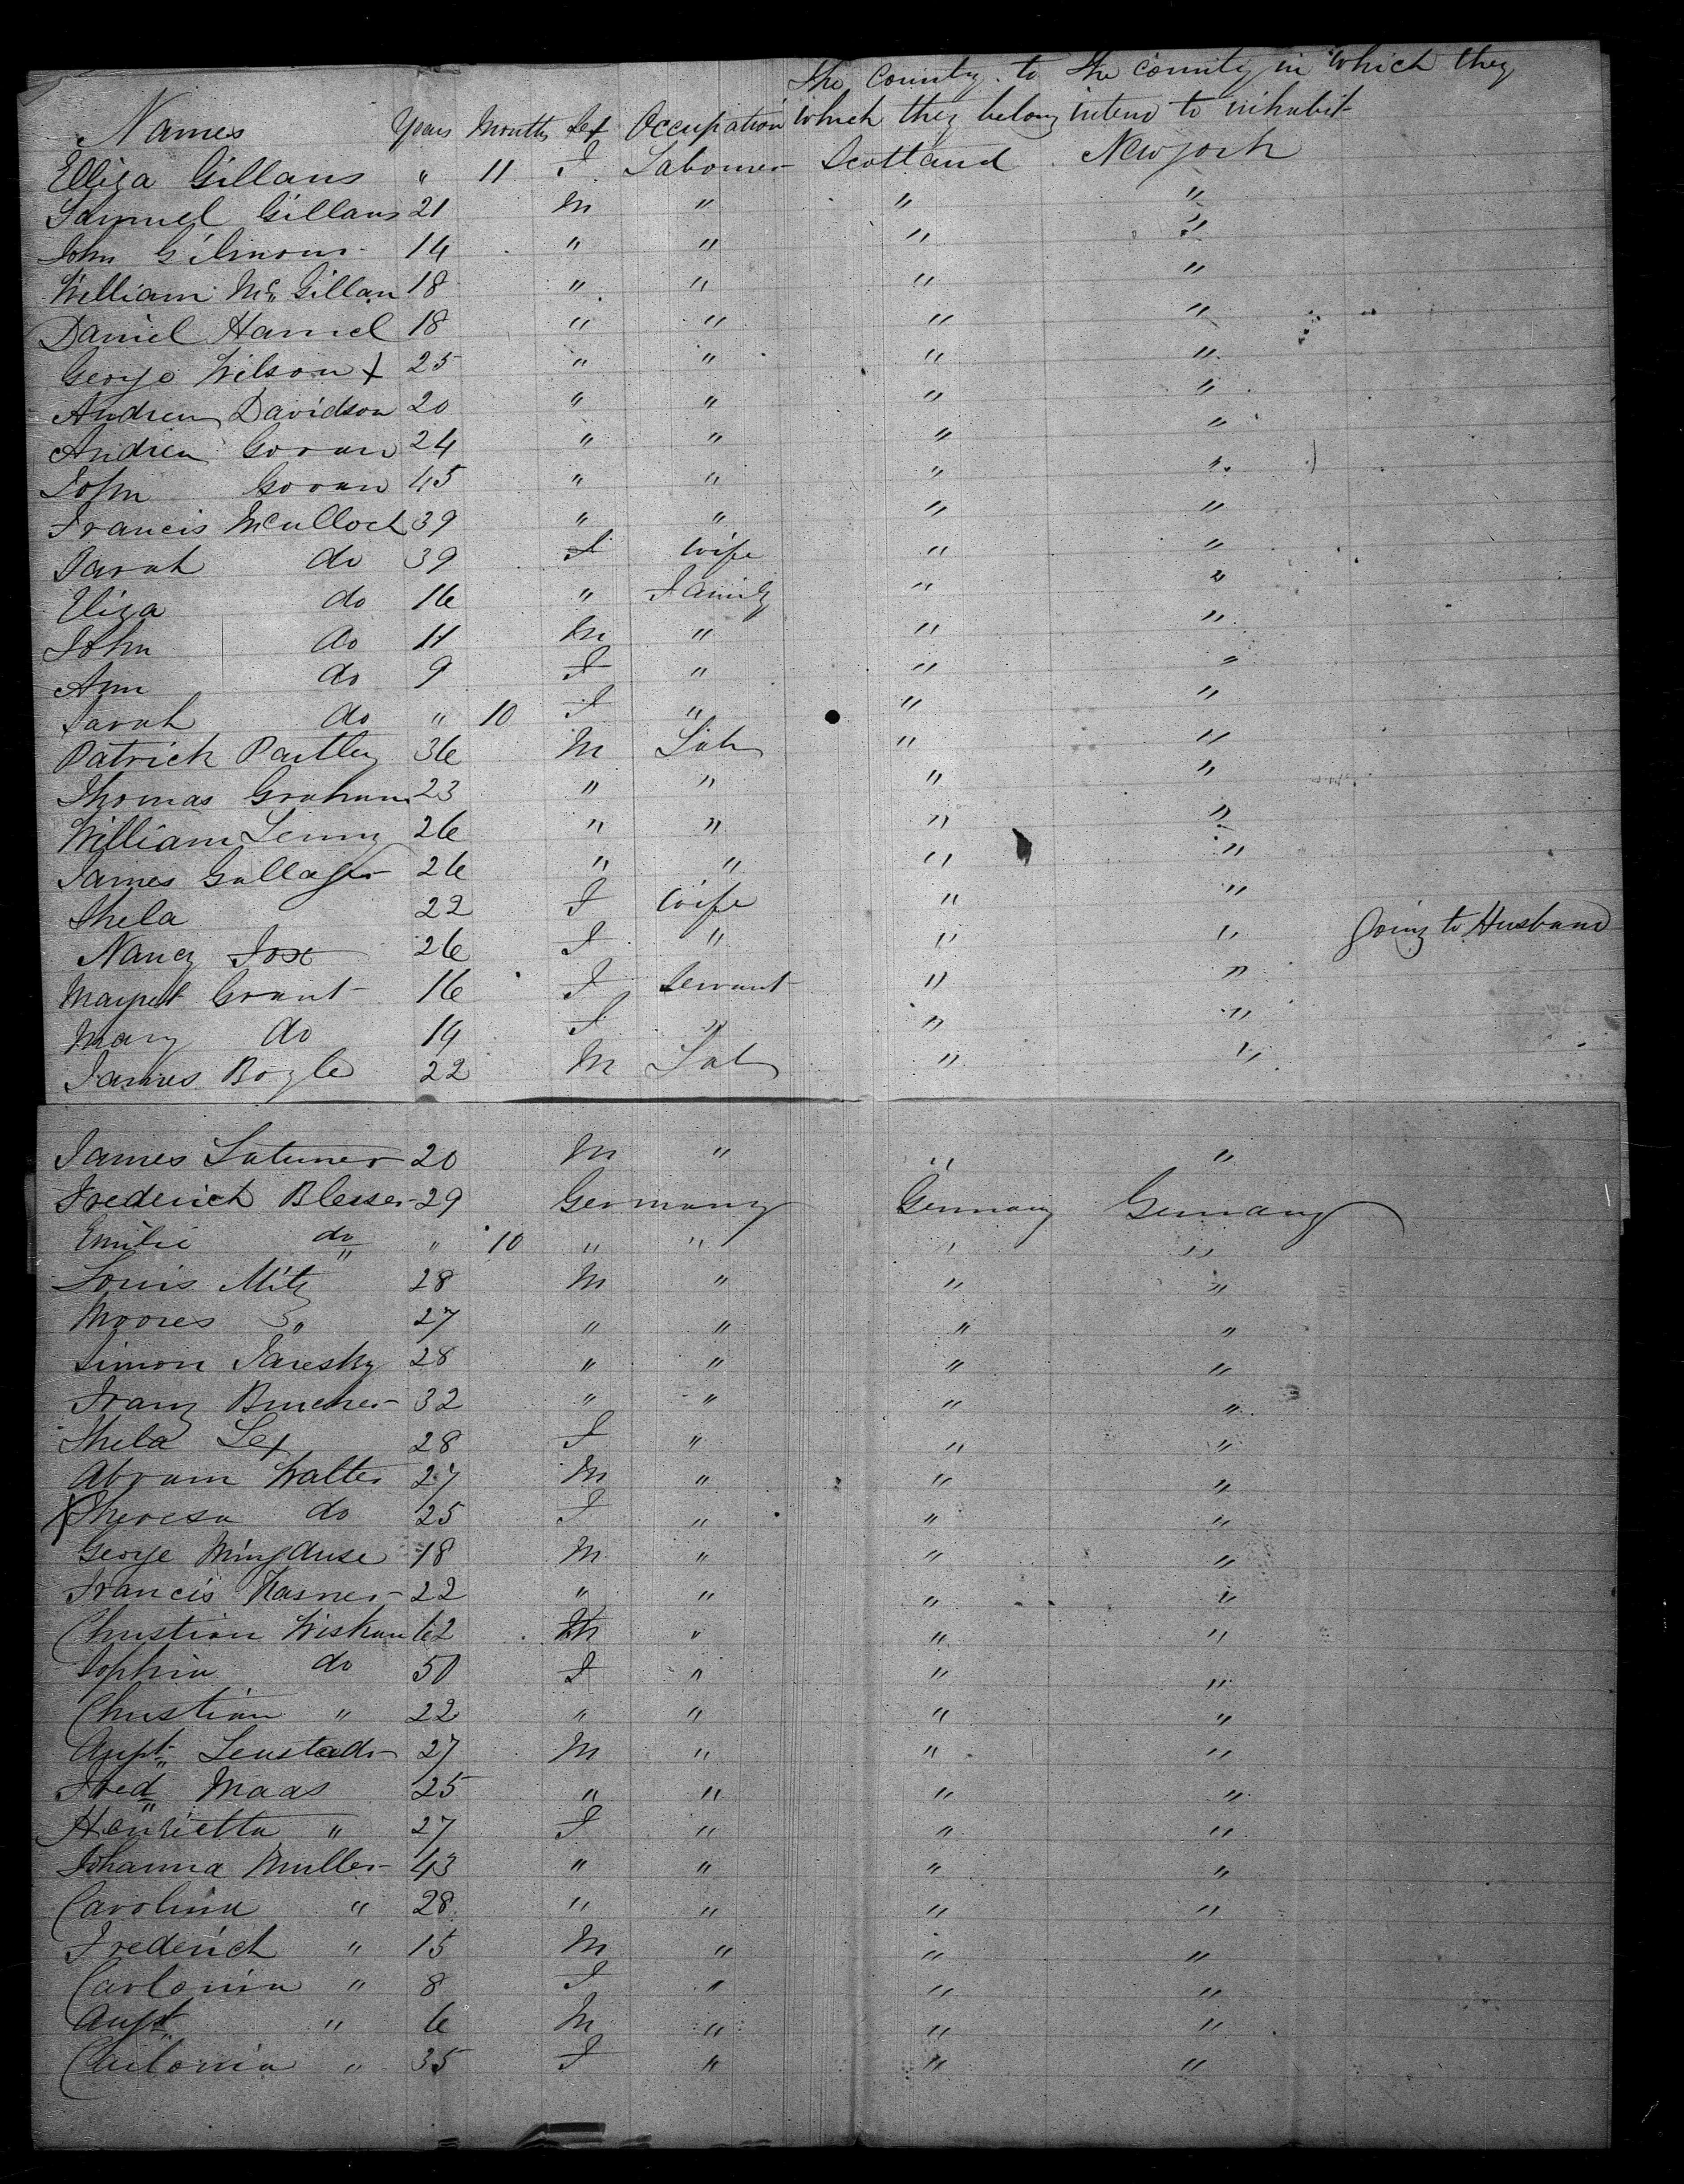 The County to The County in which they
Names Years Months Sex Occupation which they belong intend to inhabit
Elliza Gillans " 11 F Labourer Scotland New York
Samuel Gillans 21 M " " "
John Gilmour 14 " " " "
William Mc Gillan 18 " " " "
Daniel Hamel 18 " " " "
George Wilson + 25 " " " "
Andrew Davidson 20 " " " "
Andrew Govan 24 " " " "
John Govan 45 " " " "
Francis McCulloch 39 " " " "
Sarah do 39 F Wife " "
Eliza do 16 " Family " "
John do 11 M " " "
Ann do 9 F " " "
Sarah do " 10 F " " "
Patrick Partley 36 M Lab " "
Thomas Graham 23 " " " "
William Lenny 26 " " " "
James Gallager 26 " " " "
Thela 22 F Wife " "
Nancy Fox 26 F " " " Going to Husband
Margret Grant 16 F Servant " "
Mary do 14 F " " "
James Bogle 22 M Lab " "
James Latimer 20 M " " "
Frederich Blesser 29 Germany Germany Germany
Emilie do " 10 " " " "
Louis Mitz 28 M " " "
Moores " 27 " " " "
Simon Jaresky 28 " " " "
Franz 32 " " " "
Thela Lex 28 F " " "
Abram Walter 27 M " " "
X Theresa do 25 F " " "
George 18 M " " "
Francis Kasner 22 " " " "
Christian Wiskan 62 M " " "
Sophia do 50 F " " "
Christian " 22 " " " "
Augt 27 M " " "
Fred Maas 25 " " " "
Henrietta " 27 F " " "
Johanna Muller 43 " " " "
Carolina " 28 " " " "
Frederich " 15 M " " "
Carlonia " 8 F " " "
Augt " 6 M " " "
Carlonia " 35 F " " "